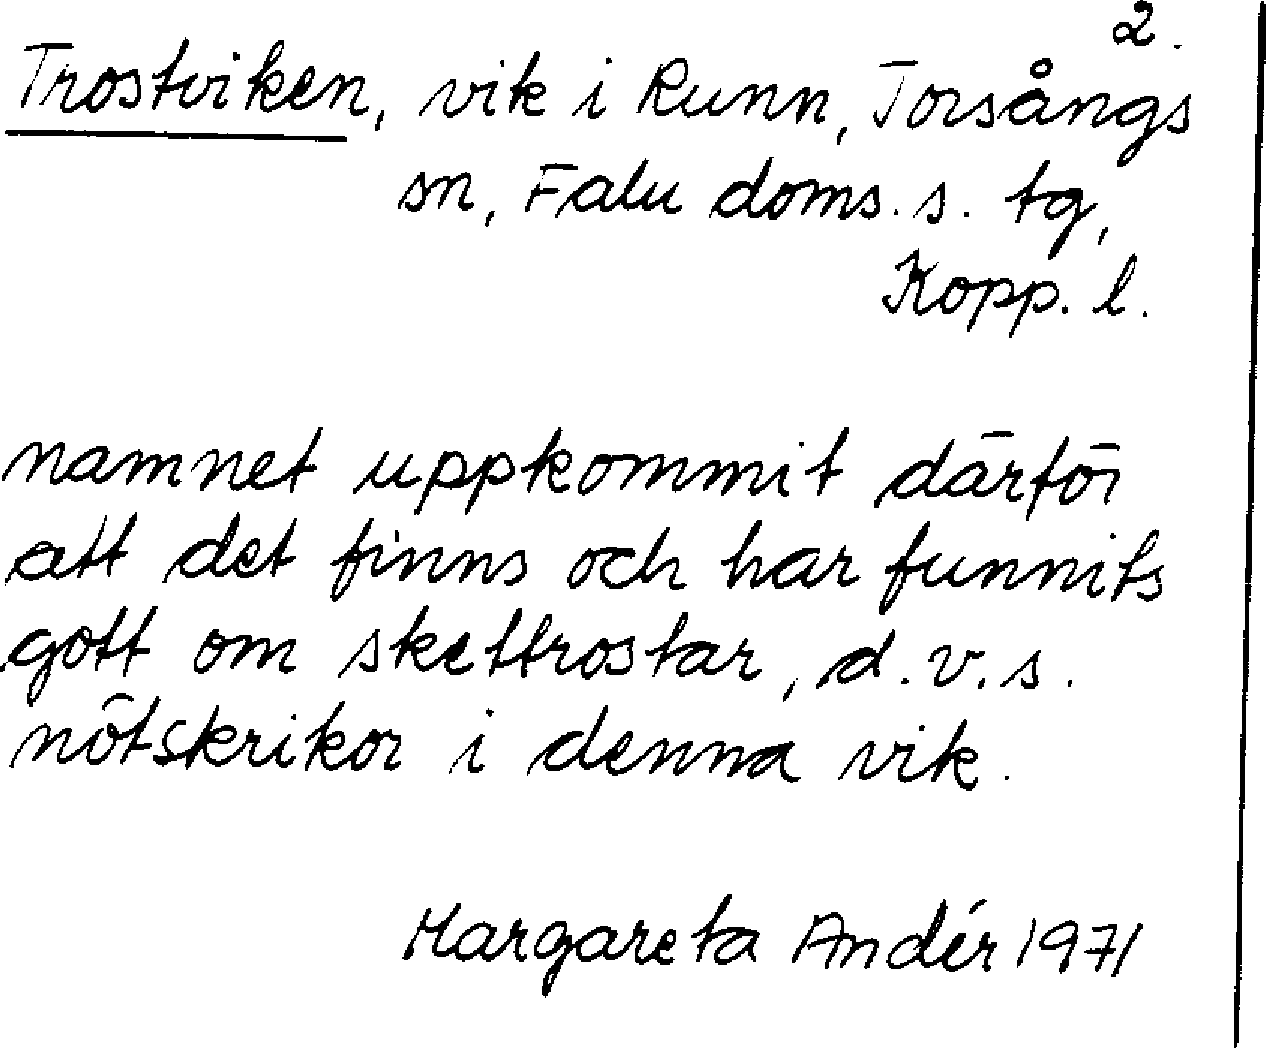 2.
Trostviken, vik i Runn, Torsångs
sn, Falu doms. s. tg,
Kopp. l.
namnet uppkommit därför
att det finns och har funnits
gott om skettrostar, d.v.s.
nötskrikor i denna vik.
Margareta Andér 1971